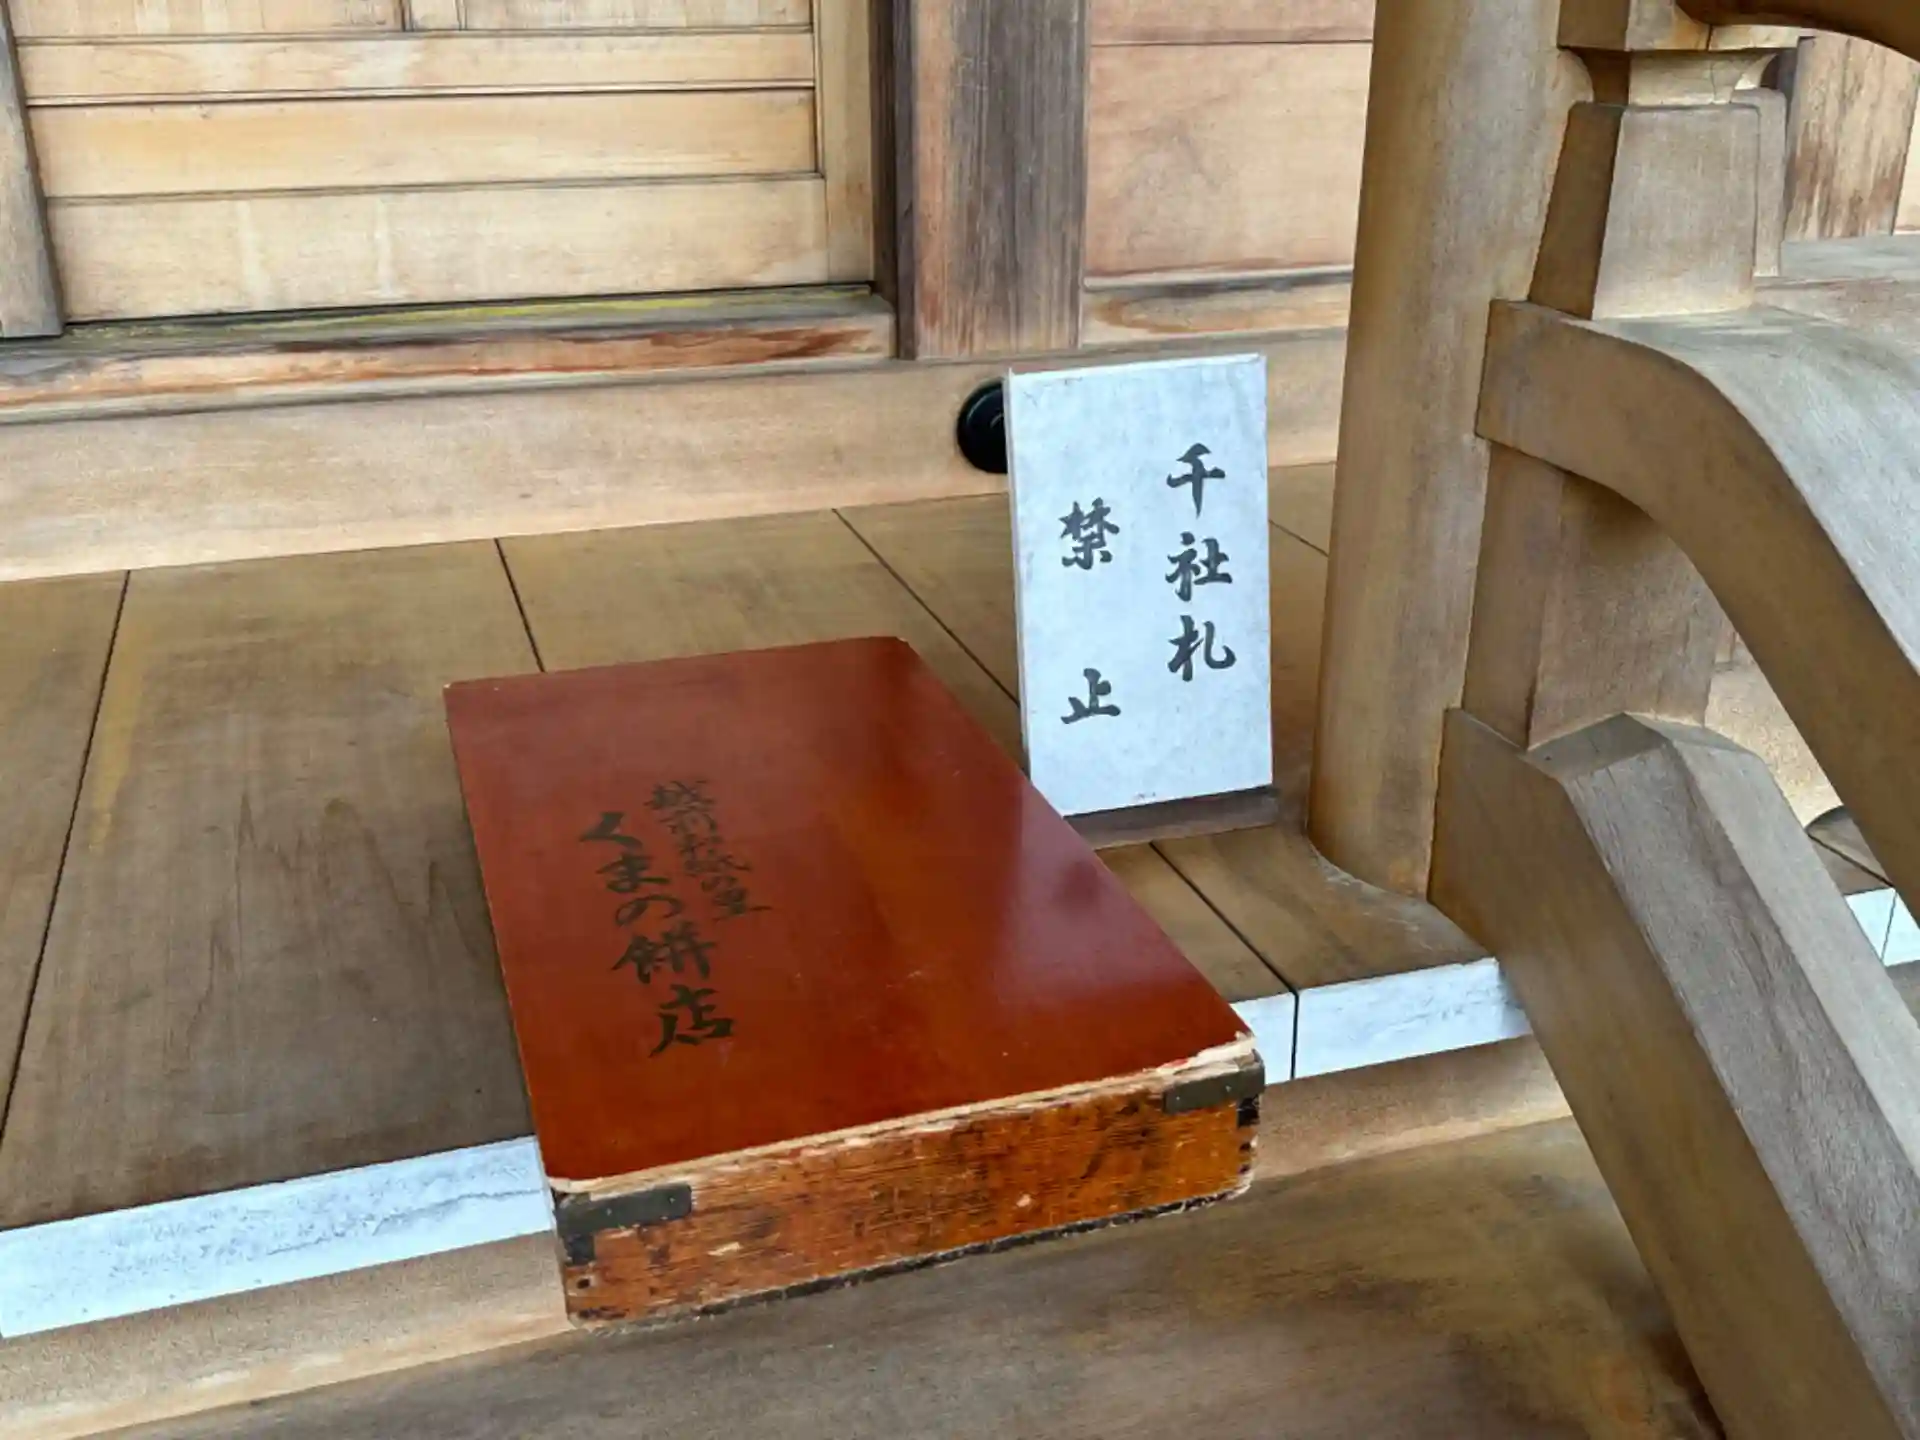 千社札
禁止
越前和紙の里
くまの餅店